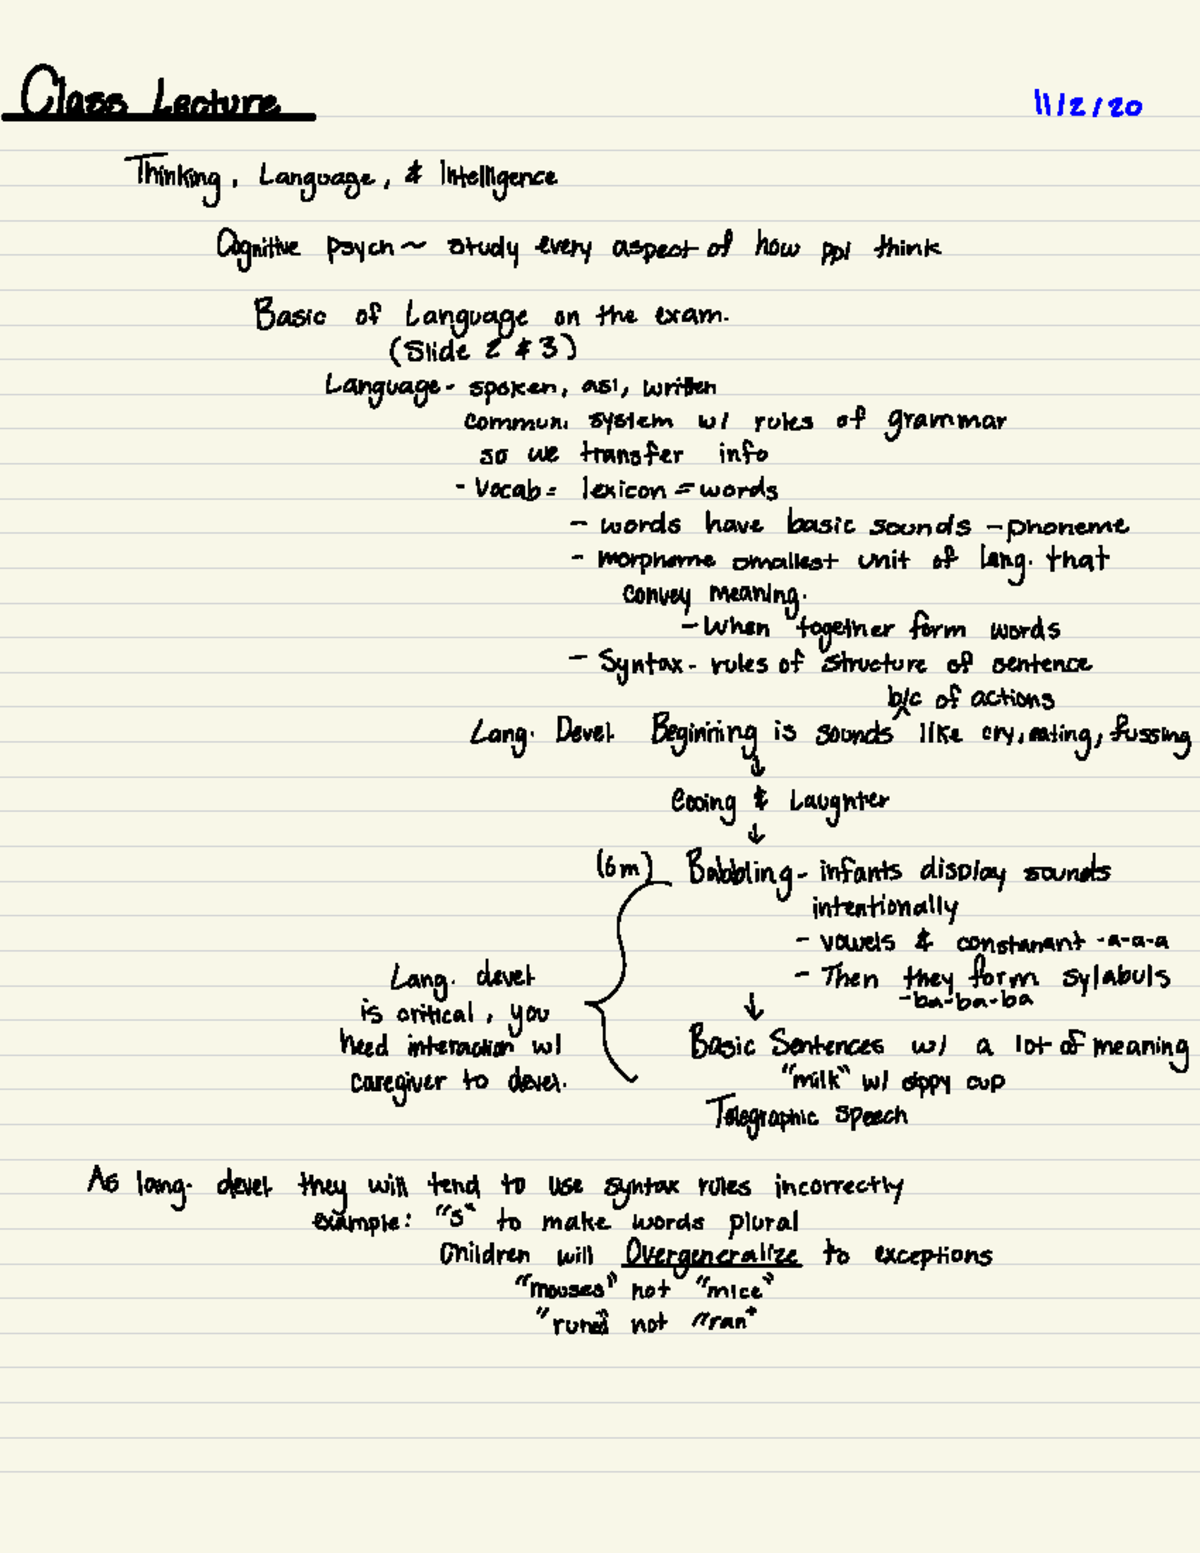 Class Lecture
11/2/20
Thinking, Language, & Intelligence
Cognitive psych ~ study every aspect of how ppl think
Basic of Language on the exam.
(Slide 2 & 3)
Language - spoken, asl, written
commun. system w/ rules of grammar
so we transfer info
- Vocab = lexicon = words
- words have basic sounds - phoneme
- morpheme smallest unit of lang. that
convey meaning.
- When together form words
- Syntax - rules of structure of sentence
b/c of actions
Lang. Devel Beginning is sounds ^ like cry, eating, fussing
↓
Cooing & Laughter
↓
(6m) Babbling - infants display sounds
intentionally
- vowels & constanant -a-a-a
- Then they form sylabuls
-ba-ba-ba
Lang. devel
is critical, you
need interaction w/
caregiver to devel.
↓
Basic Sentences w/ a lot of meaning
"milk" w/ sippy cup
Telegraphic speech
As lang. devel they will tend to use syntax rules incorrectly
example: "s" to make words plural
Children will Overgeneralize to exceptions
"mouses" not "mice"
not "ran"